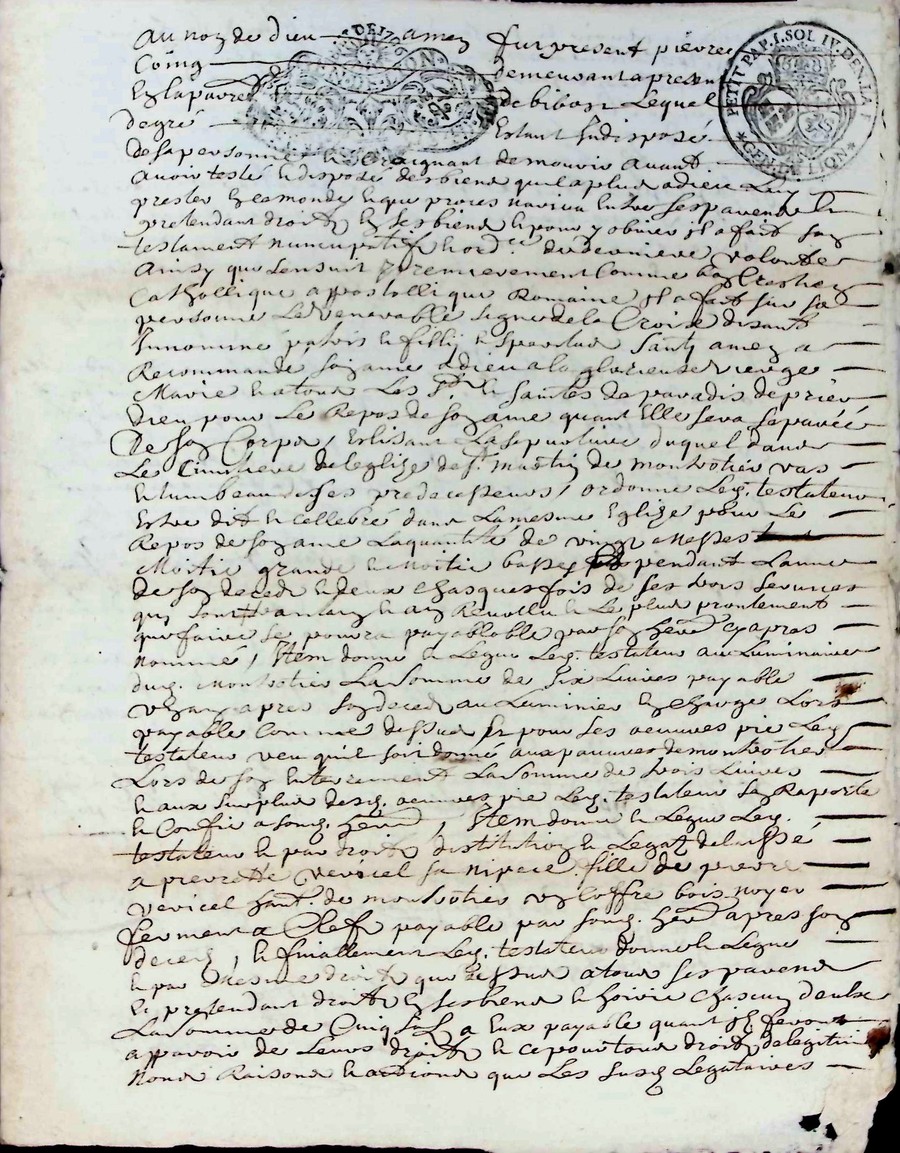 Au nom de Dieu amen fut present pierre
Coing demeurant a present
En la parr de bibost Lequel
de gré Estant Indisposé
de sa personne et Craignant de mourir avant
avoir testé et disposé des biens quil a plu a dieu Luy
prester En ce monde et que proces navint Entre ses parends Et
pretendant droitz En ses biens et pour y obvier Il a fait son
testament nuncupatif et ord.ce de derniere volonté
Ainsy que sensuit premierement Comme bon Chrestien
Cathollique appostollique Romaine Il a fait sur sa
personne Le venerable signe de la Croix disant
In nomine patris et filii et spiritus santy amen a
Recommandé son ame a dieu a la glorieuse vierge
Marie et a tous Les Sts et saintes de paradis de prier
dieu pour Le Repos de son ame quant Elle sera separée
De son Corps, Eslisant La sepulture duquel dans
Les Cimetiere de leglise de St martin de montrotier vas
et tumbeau de ses predecesseurs, ordonne Led. testateur
Estre dit et cellebré dans La mesme Eglise pour Le
Repos de son ame La quantité de vingt Messes
Moitié grande et Moitié basse pendant Lannée
de son deced et deux chasques fois de ses trois services
qui sont an Revollu et Le plus promtement
que faire se pourra payablable par son herer cy apres
nommé, Item donne et Legue Led. testateur au Luminaire
dud. Montrotier La somme de six Livres payable
un an apres son deced au Luminier En charge Lors
payable Comme dessus Et pour ses oeuvres pie Led
testateur veu quil soit donné aux pauvres de montrotier
Lors de son Enterrement La somme de trois Livres
et aux surplus desd. oeuvres pie Led. testateur sen Raporte
et Confie a sond. herer, Item donne et Legue Led.
testateur et par droitz dinstitution et Legat delaissé
a pierrette vericel sa niepce fille de pierre
vericel hant. de montrotier un Coffre bois noyer
fermant a Cleff payable par sond. herer apres son
deced, et finallement Led. testateur donne et Legue
et par mesme droitz que dessus a tous ses parend
Et pretendant droitz En ses biens et hoirie chascun deulx
La somme de Cinq sols a Eux payable quant Ils feront
apparoir de Leurs droitz et ce pour tous droitz de legitime
noms Raisons et actions que Les susd Legataires
DE 176
LION
PETIT PAP. 1. SOL IV. DEN. LA F
GENER. LION